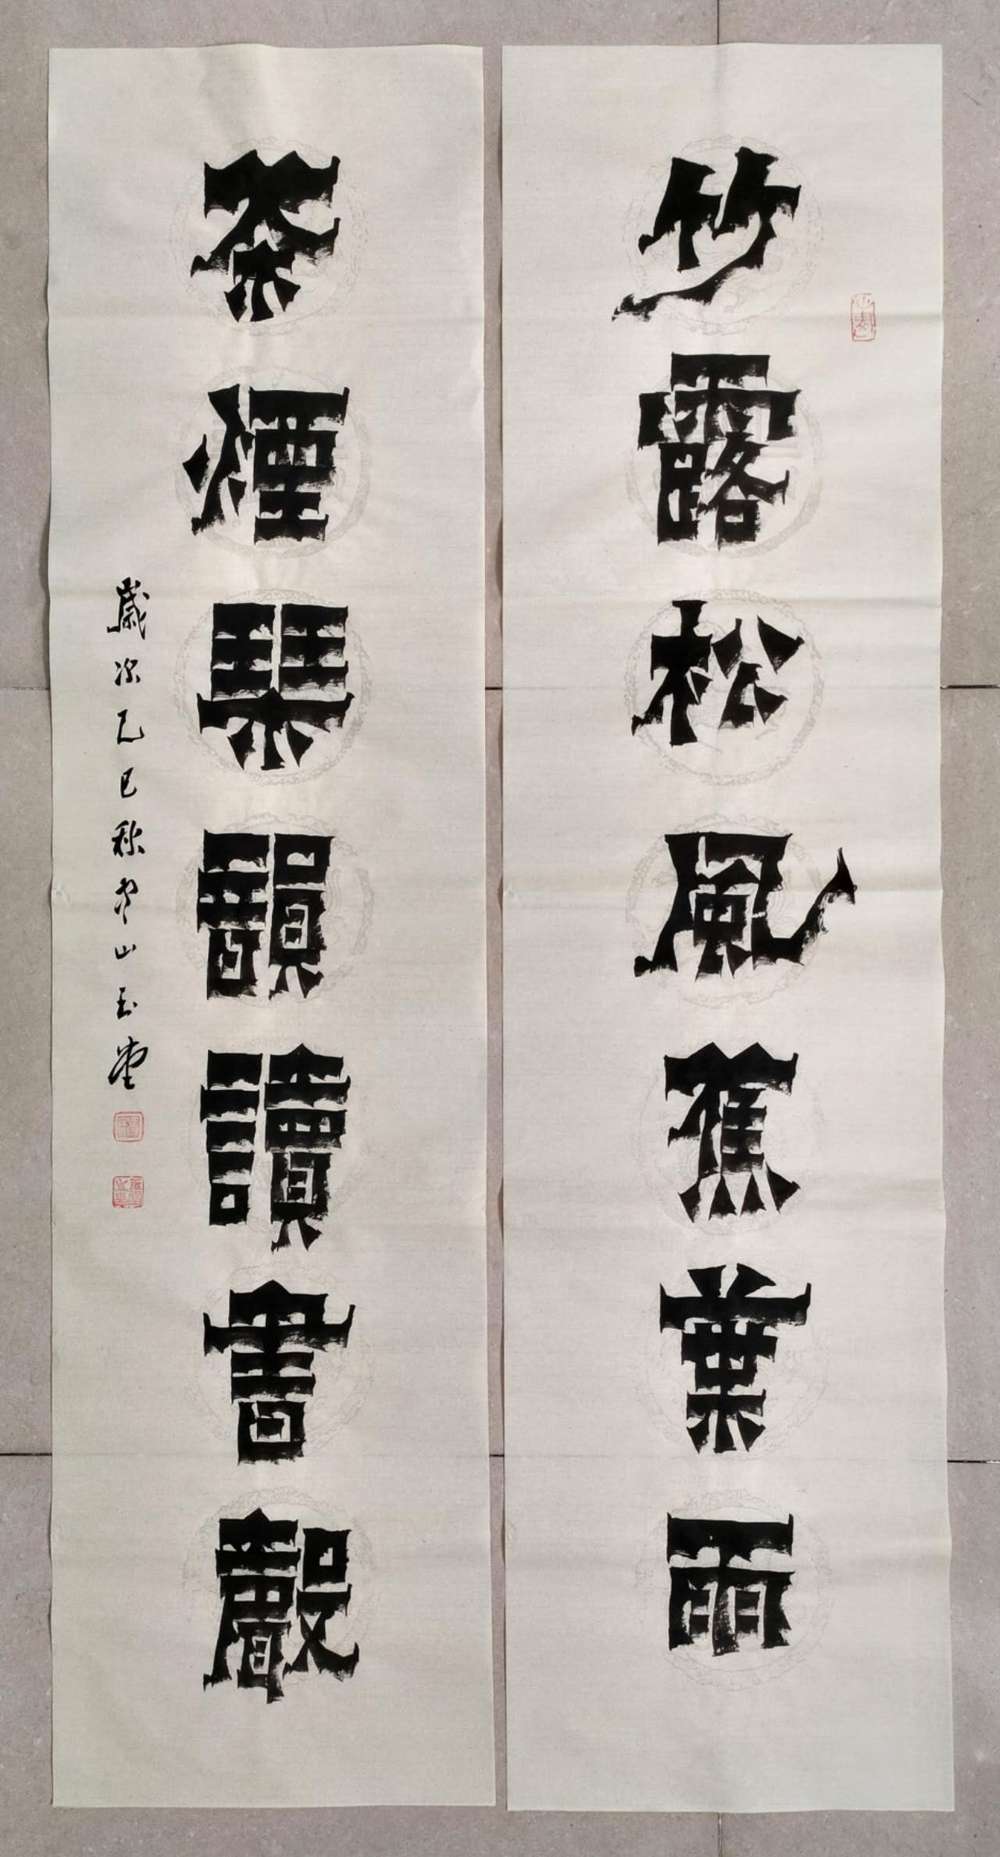 竹露松風蕉葉雨
茶煙琴韻讀書聲
歲次乙巳秋山玉堂